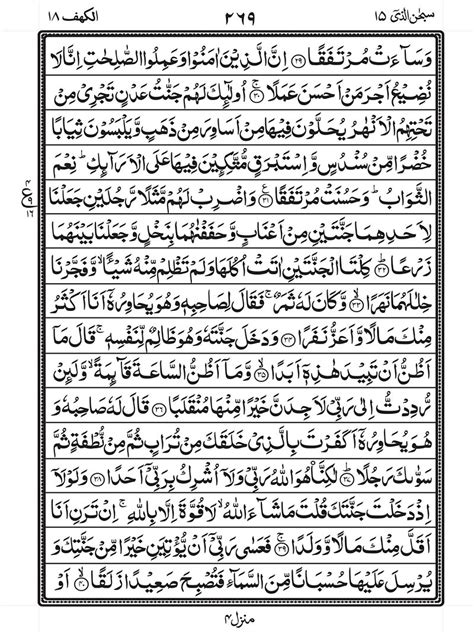 الكهف ١٨
٢٦٩
سبحٰن الذی ١٥
وَسَآءَتْ مُرْتَفَقًا ﴿٢٩﴾ اِنَّ الَّذِيْنَ اٰمَنُوْا وَعَمِلُوا الصّٰلِحٰتِ اِنَّا لَا
نُضِيْعُ اَجْرَ مَنْ اَحْسَنَ عَمَلًا ﴿٣٠﴾ اُولٰٓئِكَ لَهُمْ جَنّٰتُ عَدْنٍ تَجْرِيْ مِنْ
تَحْتِهِمُ الْاَنْهٰرُ يُحَلَّوْنَ فِيْهَا مِنْ اَسَاوِرَ مِنْ ذَهَبٍ وَّيَلْبَسُوْنَ ثِيَابًا
خُضْرًا مِّنْ سُنْدُسٍ وَّاِسْتَبْرَقٍ مُّتَّكِـِٕيْنَ فِيْهَا عَلَى الْاَرَآئِكِ ؕ نِعْمَ
الثَّوَابُ ؕ وَحَسُنَتْ مُرْتَفَقًا ﴿٣١﴾ وَاضْرِبْ لَهُمْ مَّثَلًا رَّجُلَيْنِ جَعَلْنَا
لِاَحَدِهِمَا جَنَّتَيْنِ مِنْ اَعْنَابٍ وَّحَفَفْنٰهُمَا بِنَخْلٍ وَّجَعَلْنَا بَيْنَهُمَا
زَرْعًا ﴿٣٢﴾ كِلْتَا الْجَنَّتَيْنِ اٰتَتْ اُكُلَهَا وَلَمْ تَظْلِمْ مِّنْهُ شَيْـًٔا ۙ وَّفَجَّرْنَا
خِلٰلَهُمَا نَهَرًا ﴿٣٣﴾ وَّكَانَ لَهٗ ثَمَرٌ ۚ فَقَالَ لِصَاحِبِهٖ وَهُوَ يُحَاوِرُهٗٓ اَنَا اَكْثَرُ
مِنْكَ مَالًا وَّاَعَزُّ نَفَرًا ﴿٣٤﴾ وَدَخَلَ جَنَّتَهٗ وَهُوَ ظَالِمٌ لِّنَفْسِهٖ ۚ قَالَ مَآ
اَظُنُّ اَنْ تَبِيْدَ هٰذِهٖٓ اَبَدًا ﴿٣٥﴾ وَّمَآ اَظُنُّ السَّاعَةَ قَآئِمَةً ۙ وَّلَئِنْ
رُّدِدْتُّ اِلٰى رَبِّيْ لَاَجِدَنَّ خَيْرًا مِّنْهَا مُنْقَلَبًا ﴿٣٦﴾ قَالَ لَهٗ صَاحِبُهٗ وَ
هُوَ يُحَاوِرُهٗٓ اَكَفَرْتَ بِالَّذِيْ خَلَقَكَ مِنْ تُرَابٍ ثُمَّ مِنْ نُّطْفَةٍ ثُمَّ
سَوّٰىكَ رَجُلًا ﴿٣٧﴾ لٰكِنَّا۠ هُوَ اللّٰهُ رَبِّيْ وَلَآ اُشْرِكُ بِرَبِّيْٓ اَحَدًا ﴿٣٨﴾ وَلَوْلَآ
اِذْ دَخَلْتَ جَنَّتَكَ قُلْتَ مَا شَآءَ اللّٰهُ ۙ لَا قُوَّةَ اِلَّا بِاللّٰهِ ۚ اِنْ تَرَنِ اَنَا
اَقَلَّ مِنْكَ مَالًا وَّوَلَدًا ﴿٣٩﴾ فَعَسٰى رَبِّيْٓ اَنْ يُّؤْتِيَنِ خَيْرًا مِّنْ جَنَّتِكَ وَ
يُرْسِلَ عَلَيْهَا حُسْبَانًا مِّنَ السَّمَآءِ فَتُصْبِحَ صَعِيْدًا زَلَقًا ﴿٤٠﴾ اَوْ
منزل ٤